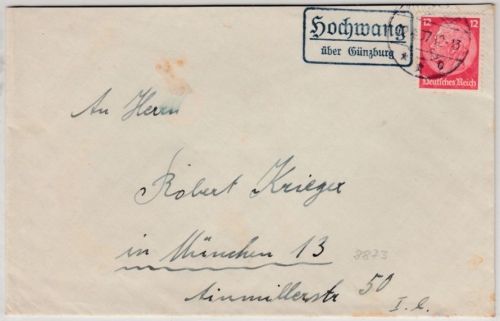 Hochwang
über Günzburg
12 12
Deutsches Reich
An Herrn
Robert Krieger
in München 13
8823
Ainmillerstr 50
I. l.